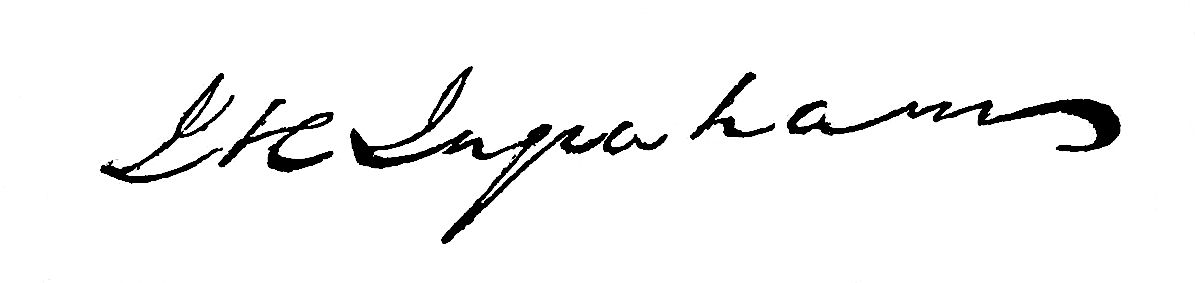 J H Ingraham